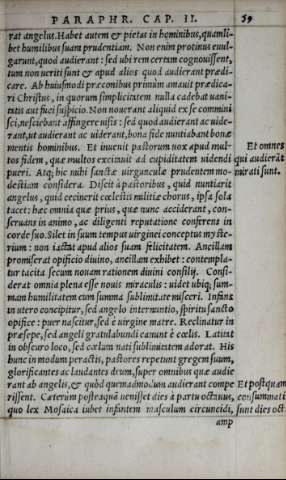 PARAPHR. CAP. II. 59
rat angelus. Habet autem & pietas in hominibus, quamli-
bet humilibus suam prudentiam. Non enim protinus euul-
garunt, quod audierant: sed ubi rem certam cognouissent,
tum non ueriti sunt & apud alios quod audierant prædi-
care. Ab huiusmodi præconibus primùm amauit prædica-
ri Christus, in quorum simplicitatem nulla cadebat uani-
tatis aut fuci suspicio. Non nouerant aliquid ex se commini
sci, nesciebant affingere uisis: sed quod audierant ac uide-
rant, ut audierant ac uiderant, bona fide nuntiabant bonæ
mentis hominibus. Et inuenit pastorum uox apud mul-
tos fidem, quæ multos exciuit ad cupiditatem uidendi
pueri. Atq; hic mihi sanctæ uirgunculæ prudentem mo-
destiam considera. Discit à pastoribus, quid nuntiarit
angelus, quid cecinerit cœlestis militiæ chorus, ipsa sola
tacet: hæc omnia quæ prius, quæ nunc acciderant, con-
seruans in animo, ac diligenti reputatione conferens in
corde suo. Silet in suum tempus uirginei conceptus myste-
rium: non iactat apud alios suam felicitatem. Ancillam
promiserat opificio diuino, ancillam exhibet: contempla-
tur tacita secum nouam rationem diuini consilij. Consi-
derat omnia plena esse nouis miraculis: uidet ubiq; sum-
mam humilitatem cum summa sublimitate misceri. Infans
in utero concipitur, sed angelo internuntio, spiritu sancto
opifice: puer nascitur, sed è uirgine matre. Reclinatur in
præsepe, sed angeli gratulabundi canunt è cœlis. Latent
in obscuro loco, sed cœlum nati sublimitatem adorat. His
hunc in modum peractis, pastores repetunt gregem suum,
glorificantes ac laudantes deum, super omnibus quæ audie
rant ab angelis, & quòd quemadmodum audierant compe
rissent. Cæterum posteaquã uenisset dies à partu octauus,
quo lex Mosaica iubet infantem masculum circuncidi,
amp
Et omnes
qui audierãt
mirati sunt.
Et postquam
consummati
sunt dies oct